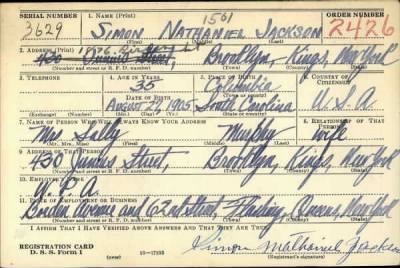 SERIAL NUMBER 1. NAME (Print) 1561 ORDER NUMBER
3629 SIMON NATHANIEL JACKSON 2426
(First) (Middle) (Last)
2. ADDRESS (Print) 1876
430 Junius Street, Brooklyn, Kings, New York
(Number and street or R. F. D. number) (Town) (County) (State)
3. TELEPHONE 4. AGE IN YEARS 5. PLACE OF BIRTH 6. COUNTRY OF CITIZENSHIP
35
DATE OF BIRTH
August 27, 1905 South Carolina U.S.A.
(Exchange) (Number) (Mo.) (Day) (Yr.) (State or country)
7. NAME OF PERSON WHO WILL ALWAYS KNOW YOUR ADDRESS 8. RELATIONSHIP OF THAT PERSON
Mrs Sally Murphy wife
(Mr., Mrs., Miss) (First) (Middle) (Last)
9. ADDRESS OF THAT PERSON
430 Junius Street, Brooklyn, Kings, New York
(Number and street or R. F. D. number) (Town) (County) (State)
10. EMPLOYER'S NAME
W.P.A.
11. PLACE OF EMPLOYMENT OR BUSINESS
Avenue and 62nd Street, Flushing, Queens, New York
(Number and street or R. F. D. number) (Town) (County) (State)
I AFFIRM THAT I HAVE VERIFIED ABOVE ANSWERS AND THAT THEY ARE TRUE.
REGISTRATION CARD
D. S. S. Form 1 (over) 16—17105 Simon Nathaniel Jackson